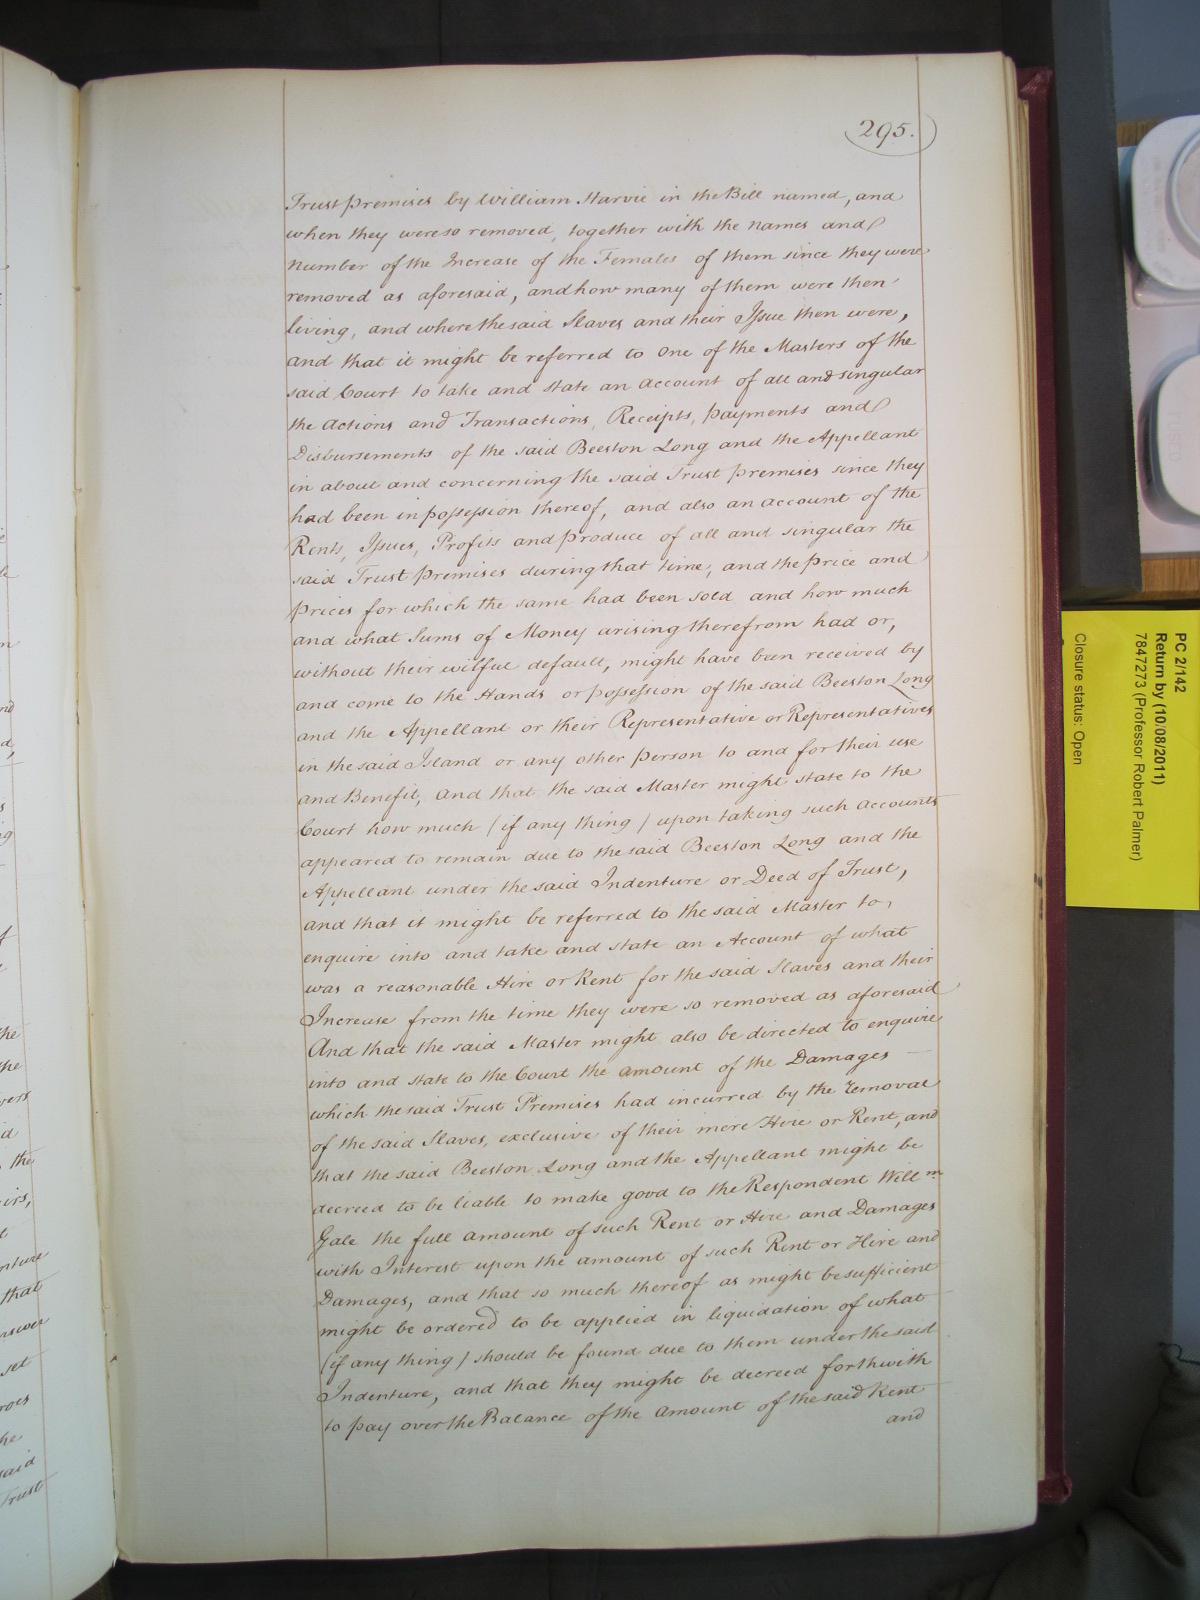 295.
Trust premises by William Harvie in the Bill named, and
when they were so removed, together with the names and
number of the Increase of the Females of them since they were
removed as aforesaid, and how many of them were then
living, and where the said Slaves and their Issue then were,
and that it might be referred to one of the Masters of the
said Court to take and state an account of all and singular
the actions and Transactions, Receipts, payments and
Disbursements of the said Beeston Long and the Appellant
in about and concerning the said Trust premises since they
had been in possession thereof, and also an account of the
Rents, Issues, Profits and produce of all and singular the
said Trust premises during that time, and the price and
prices for which the same had been sold and how much
and what Sums of Money arising therefrom had or,
without their wilful default, might have been received by
and come to the Hands or possession of the said Beeston Long
and the Appellant or their Representative or Representatives
in the said Island or any other person to and for their use
and Benefit, and that the said Master might state to the
Court how much (if any thing) upon taking such accounts
appeared to remain due to the said Beeston Long and the
Appellant under the said Indenture or Deed of Trust,
and that it might be referred to the said Master to,
enquire into and take and state an Account of what
was a reasonable Hire or Rent for the said Slaves and their
Increase from the time they were so removed as aforesaid
And that the said Master might also be directed to enquire
into and state to the Court the amount of the Damages
which the said Trust Premises had incurred by the removal
of the said Slaves, exclusive of their mere Hire or Rent, and
that the said Beeston Long and the Appellant might be
decreed to be liable to make good to the Respondent Willm
Gale the full amount of such Rent or Hire and Damages
with Interest upon the amount of such Rent or Hire and
Damages, and that so much thereof as might be sufficient
might be ordered to be applied in liquidation of what
(if any thing) should be found due to them under the said
Indenture, and that they might be decreed forthwith
to pay over the Balance of the amount of the said Rent
and
PC 2/142
Return by (10/08/2011)
7847273 (Professor Robert Palmer)
Closure status: Open